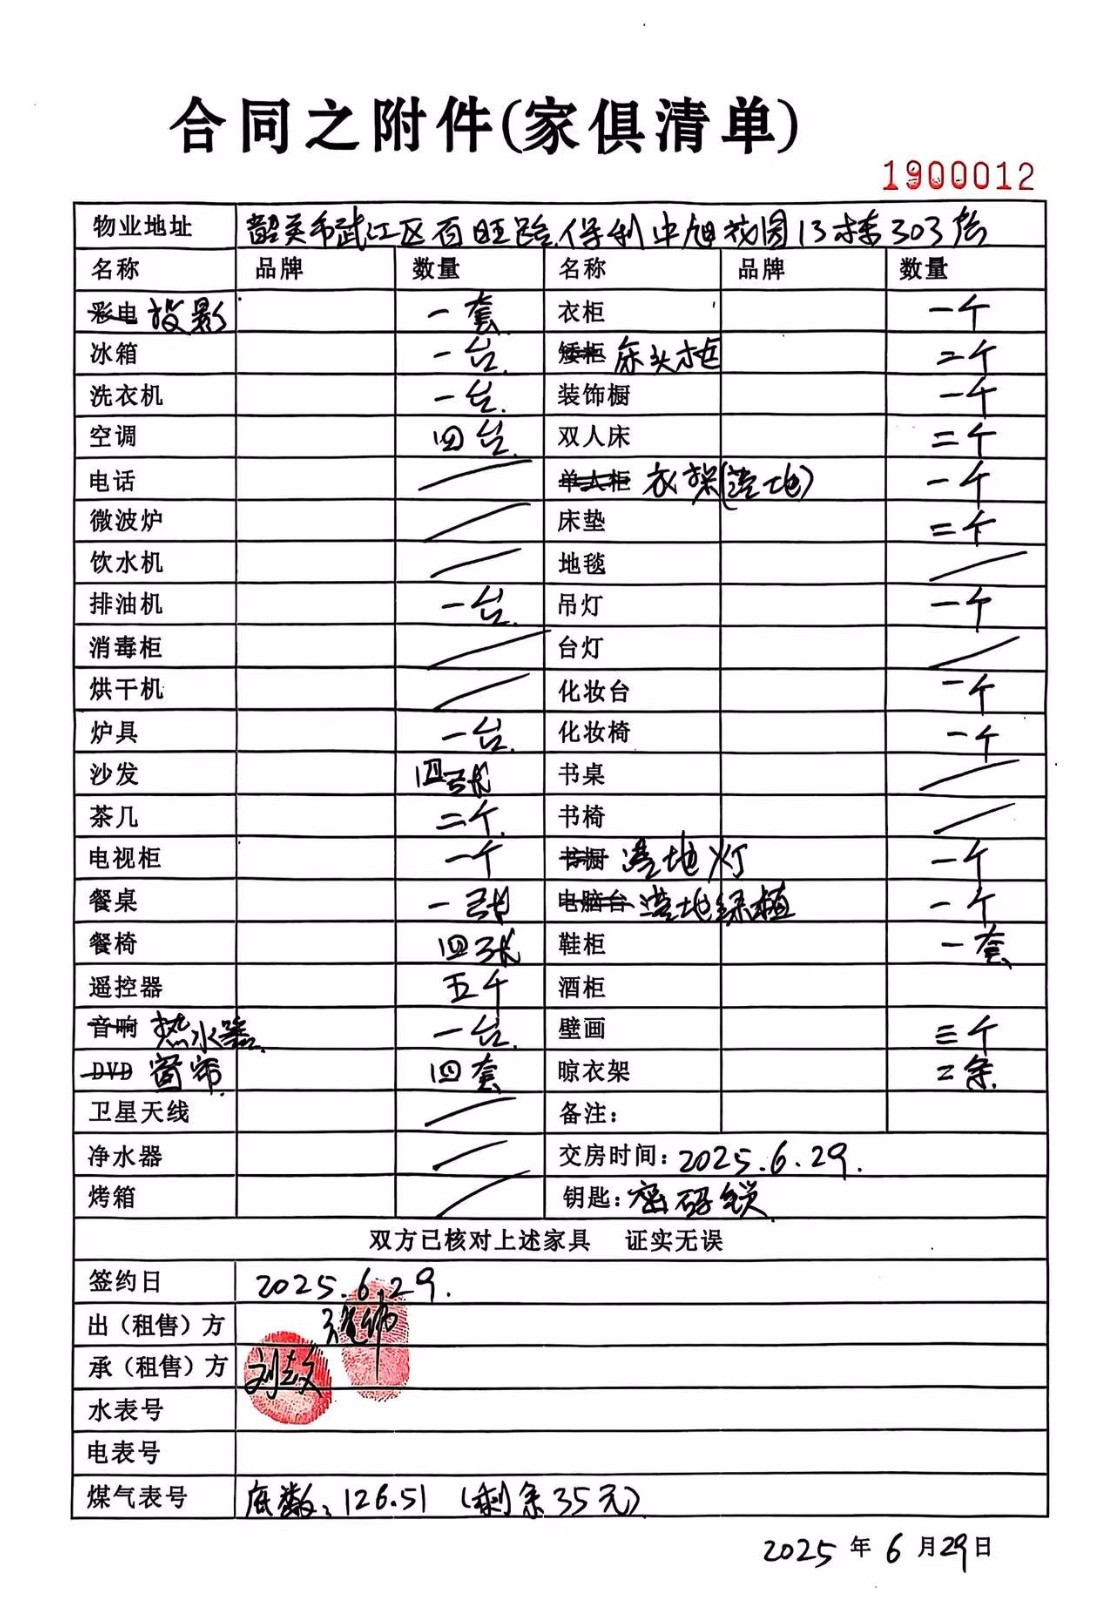 合同之附件(家俱清单)
1900012
物业地址 韶关市武江区百旺路保利中旭花园13栋303房
名称 品牌 数量 名称 品牌 数量
彩电 投影 一套 衣柜 一个
冰箱 一台 矮柜 床头柜 二个
洗衣机 一台 装饰橱 一个
空调 四台 双人床 二个
电话 单人柜 衣架(落地) 一个
微波炉 床垫 二个
饮水机 地毯
排油机 一台 吊灯 一个
消毒柜 台灯
烘干机 化妆台 一个
炉具 一台 化妆椅 一个
沙发 四张 书桌
茶几 二个 书椅
电视柜 一个 书橱 落地灯 一个
餐桌 一张 电脑台 落地绿植 一个
餐椅 四张 鞋柜 一套
遥控器 五个 酒柜
音响 热水器 一台 壁画 三个
DVD 窗帘 四套 晾衣架 2条
卫星天线 备注:
净水器 交房时间: 2025.6.29.
烤箱 钥匙: 密码锁
双方已核对上述家具 证实无误
签约日 2025.6.29.
出（租售）方
承（租售）方 刘
水表号
电表号
煤气表号 底数: 126.51 (剩余35元)
2025 年 6 月 29 日